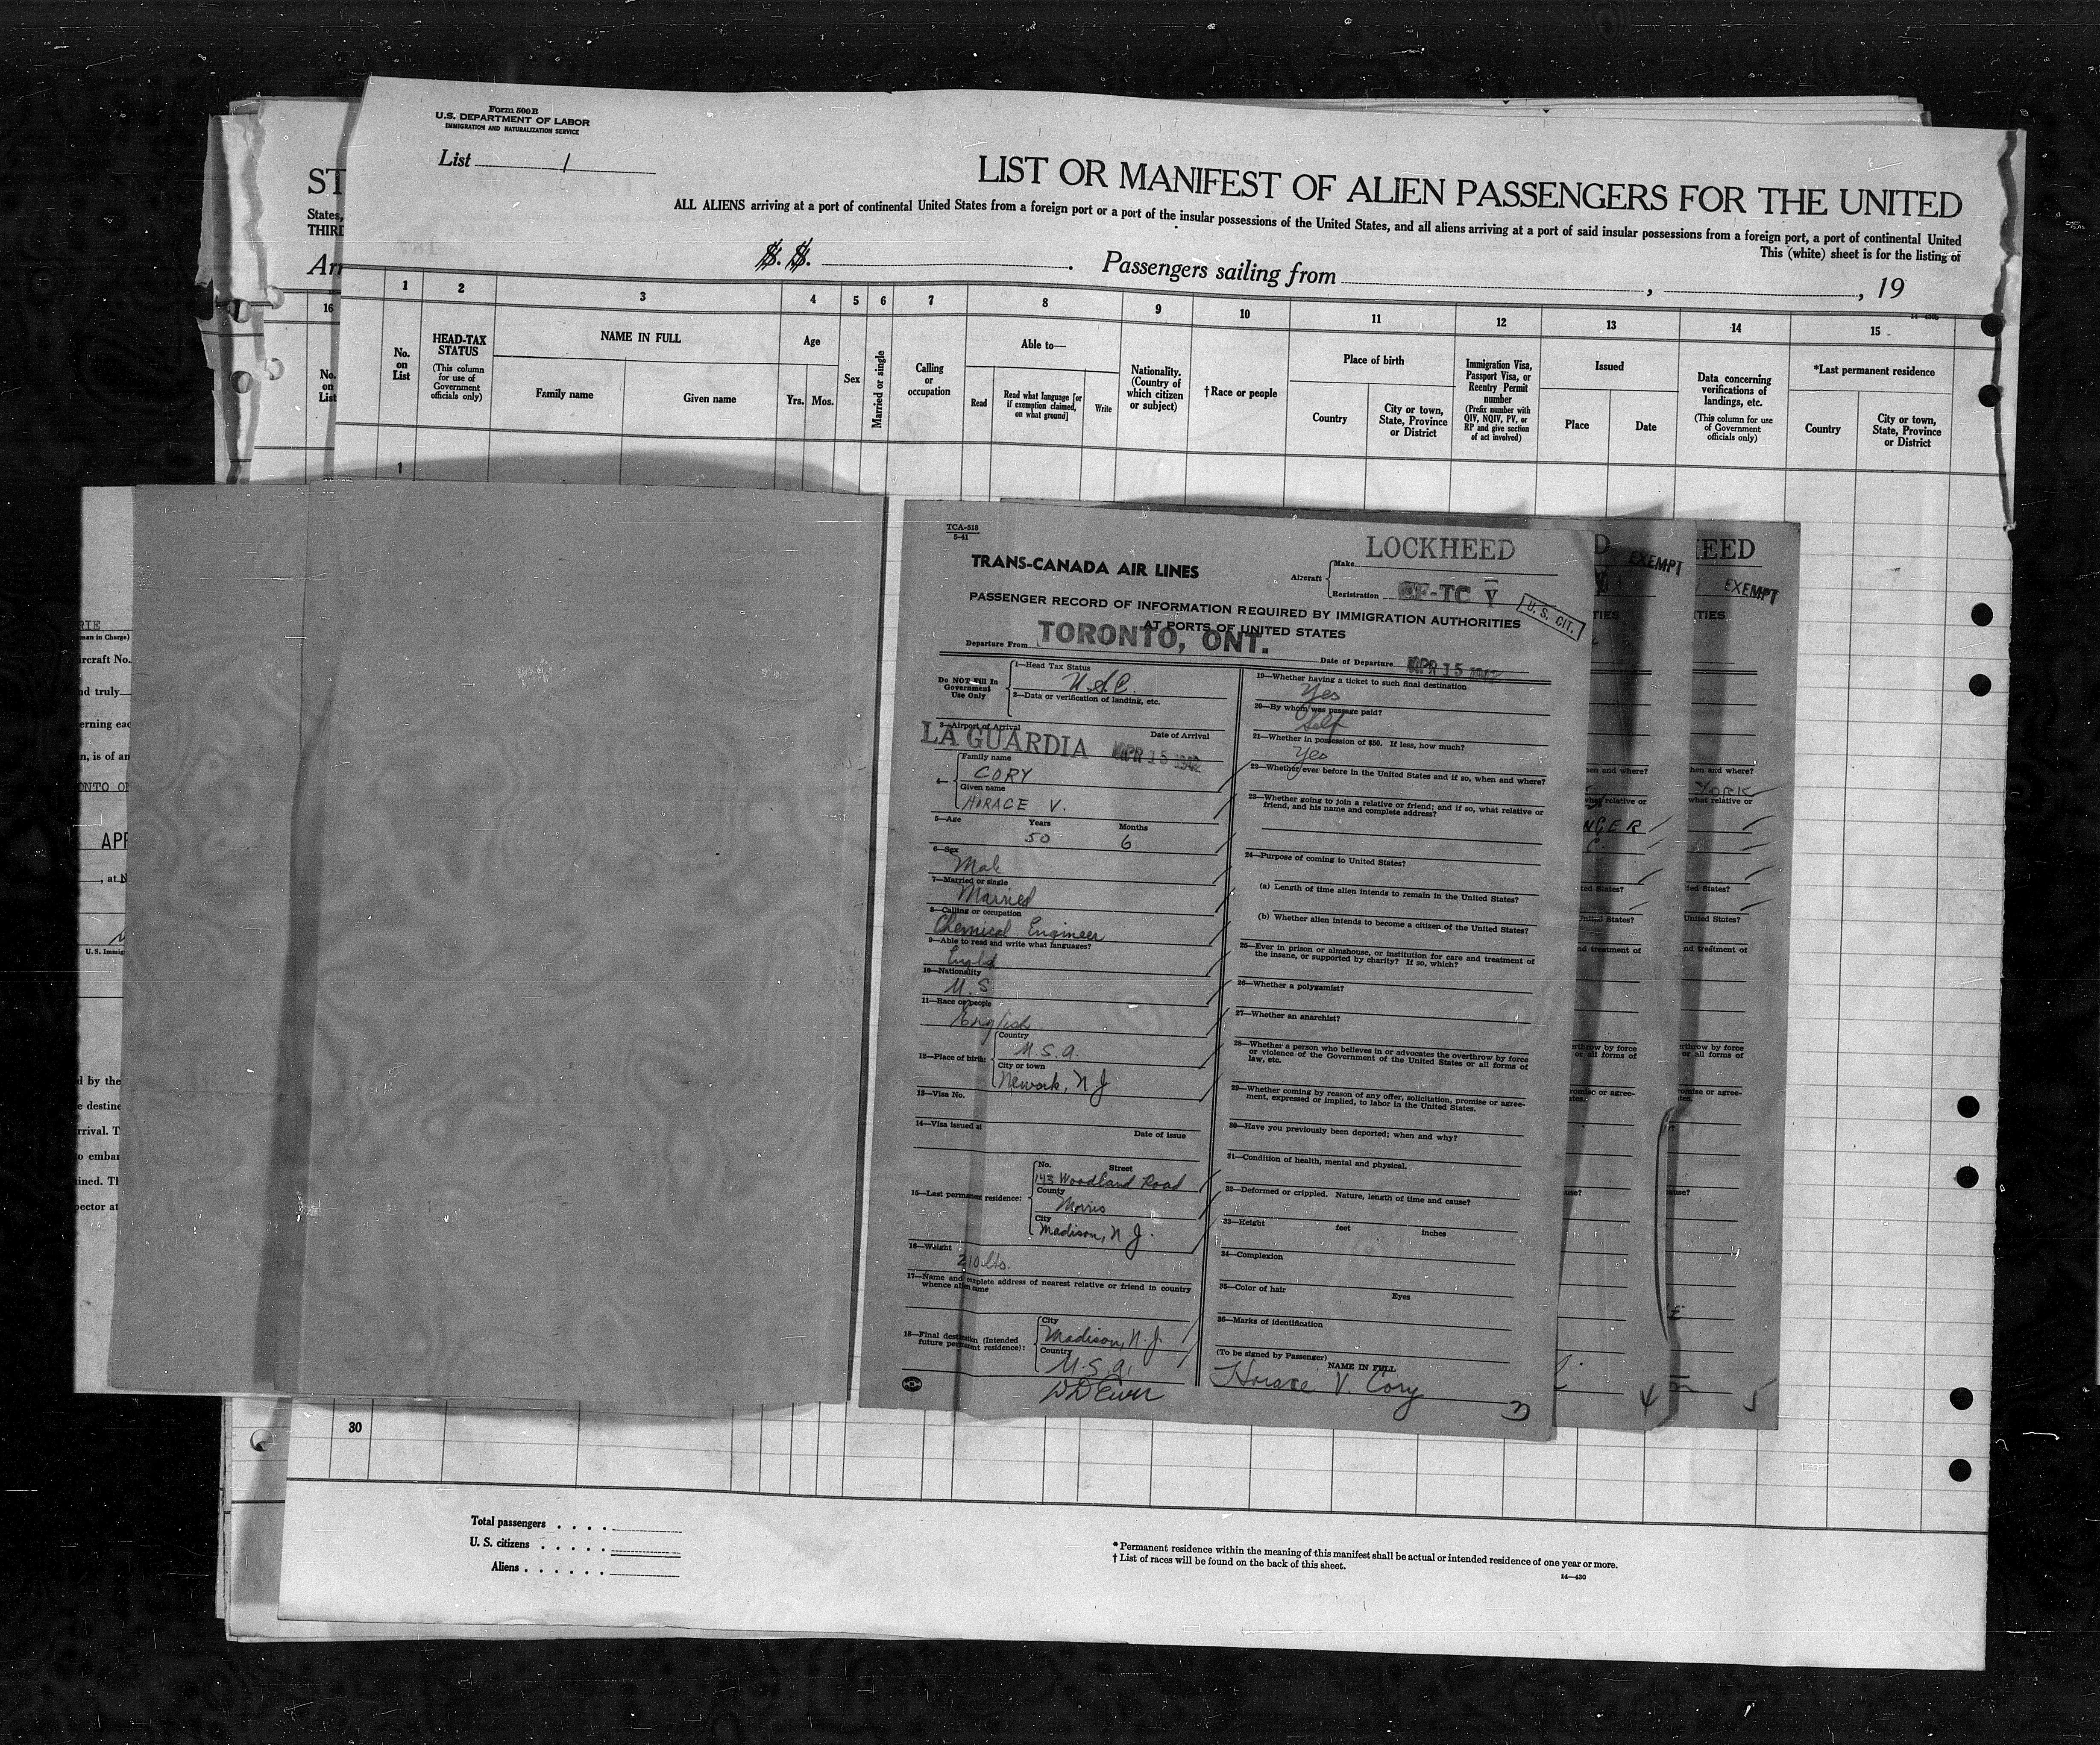 Form 500B
U.S. DEPARTMENT OF LABOR
IMMIGRATION AND NATURALIZATION SERVICE
List 1
LIST OR MANIFEST OF ALIEN PASSENGERS FOR THE UNITED
ST
ALL ALIENS arriving at a port of continental United States from a foreign port or a port of the insular possessions of the United States, and all aliens arriving at a port of said insular possessions from a foreign port, a port of continental United
States,
THIRD
This (white) sheet is for the listing of
Arr
S. S. . Passengers sailing from , , 19
1 2 3 4 5 6 7 8 9 10 11 12 13 14 15
16
No. on List
HEAD-TAX STATUS
(This column for use of Government officials only)
NAME IN FULL
Family name
Given name
Age
Yrs. Mos.
Sex
Married or single
Calling or occupation
Able to—
Read
Read what language [or if exemption claimed, on what ground]
Write
Nationality. (Country of which citizen or subject)
†Race or people
Place of birth
Country
City or town, State, Province or District
Immigration Visa, Passport Visa, or Reentry Permit number
(Prefix number with QIV, NQIV, PV, or RP and give section of act involved)
Issued
Place
Date
Data concerning verifications of landings, etc.
(This column for use of Government officials only)
*Last permanent residence
Country
City or town, State, Province or District
No. on List
1
TCA-518
5-41
TRANS-CANADA AIR LINES
Aircraft
Make LOCKHEED
Registration CF-TC V
U. S. CIT.
PASSENGER RECORD OF INFORMATION REQUIRED BY IMMIGRATION AUTHORITIES
AT PORTS OF UNITED STATES
Departure From TORONTO, ONT.
Date of Departure APR 15 1942
Do NOT Fill In Government Use Only
1—Head Tax Status
U.S.C.
2—Data or verification of landing, etc.
3—Airport of Arrival
Date of Arrival
LA GUARDIA APR 15 1942
4—
Family name
CORY
Given name
HORACE V.
5—Age Years Months
50 6
6—Sex
Male
7—Married or single
Married
8—Calling or occupation
Chemical Engineer
9—Able to read and write what languages?
10—Nationality
U. S.
11—Race or people
English
12—Place of birth:
Country
U.S.A.
City or town
Newark, N.J
13—Visa No.
14—Visa issued at
Date of issue
15—Last permanent residence:
No. Street
143 Woodland Road
County
Morris
City
Madison, N J.
16—Weight
210 lbs.
17—Name and complete address of nearest relative or friend in country
whence alien came
18—Final destination (Intended
future permanent residence):
City
Madison, N.J.
Country
U.S.A.
19—Whether having a ticket to such final destination
Yes
20—By whom was passage paid?
Self
21—Whether in possession of $50. If less, how much?
Yes
22—Whether ever before in the United States and if so, when and where?
23—Whether going to join a relative or friend; and if so, what relative or
friend, and his name and complete address?
24—Purpose of coming to United States?
(a) Length of time alien intends to remain in the United States?
(b) Whether alien intends to become a citizen of the United States?
25—Ever in prison or almshouse, or institution for care and treatment of
the insane, or supported by charity? If so, which?
26—Whether a polygamist?
27—Whether an anarchist?
28—Whether a person who believes in or advocates the overthrow by force
or violence of the Government of the United States or all forms of
law, etc.
29—Whether coming by reason of any offer, solicitation, promise or agree-
ment, expressed or implied, to labor in the United States.
30—Have you previously been deported; when and why?
31—Condition of health, mental and physical.
32—Deformed or crippled. Nature, length of time and cause?
33—Height feet inches
34—Complexion
35—Color of hair Eyes
36—Marks of identification
(To be signed by Passenger) NAME IN FULL
Horace V. Cory
3
D
EXEMPT
TIES
hen and where?
what relative or
NGER
C.
ted States?
United States?
nd treatment of
erthrow by force
or all forms of
romise or agree-
ates.
use?
4
EED
EXEMPT
TIES
hen and where?
YORK
what relative or
ted States?
United States?
nd treatment of
throw by force
r all forms of
omise or agree-
tes.
use?
5
RIE
man in Charge)
ircraft No.
nd truly
erning eac
n, is of an
ONTO ON
APR
, at N
U.S. Immig
d by the
e destine
rrival. T
o embar
ined. Th
pector at
30
Total passengers . . . .
U. S. citizens . . . . .
Aliens . . . . . .
* Permanent residence within the meaning of this manifest shall be actual or intended residence of one year or more.
† List of races will be found on the back of this sheet.
14—430